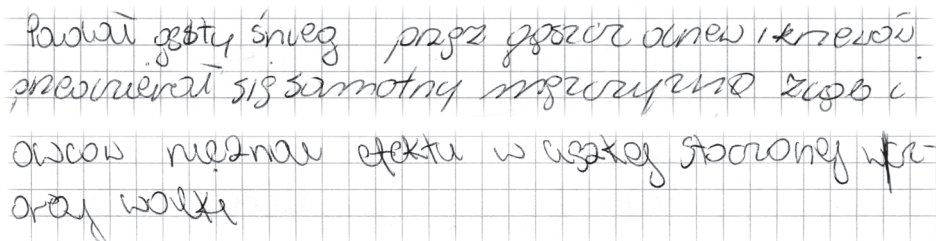 Padał gęsty śnieg przez gąszcz drzew i krzewów
przedzierał się samotny mężczyzna
owców nieznał efektu w ciężkej stoczonej wcz-
oraj walki